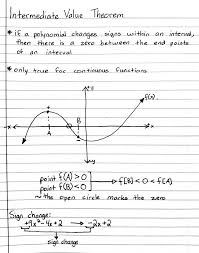 Intermediate Value Theorem
* if a polynomial changes signs within an interval,
then there is a zero between the end points
of an interval
* only true for continuous functions
y
f(x)
B
x x
A
y
point f(A) > 0
point f(B) < 0 → f(B) < 0 < f(A)
~ the open circle marks the zero
Sign change:
+4x² - 4x + 2 → -2x + 2
sign change